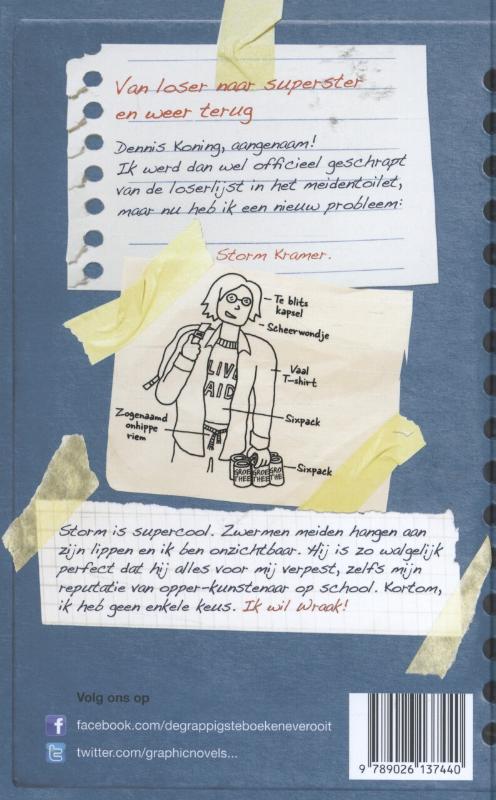 Van loser naar superster
en weer terug
Dennis Koning, aangenaam!
Ik werd dan wel officieel geschrapt
van de loserlijst in het meidentoilet,
maar nu heb ik een nieuw probleem:
Storm Kramer.
Te blits
kapsel
Scheerwondje
Vaal
T-shirt
LIVE
AID
Sixpack
Zogenaamd
onhippe
riem
Sixpack
GROE
THEE
GROE
THEE
GROE
THEE
Storm is supercool. Zwermen meiden hangen aan
zijn lippen en ik ben onzichtbaar. Hij is zo walgelijk
perfect dat hij alles voor mij verpest, zelfs mijn
reputatie van opper-kunstenaar op school. Kortom,
ik heb geen enkele keus. Ik wil wraak!
Volg ons op
f facebook.com/degrappigsteboekeneverooit
t twitter.com/graphicnovels...
9 789026 137440